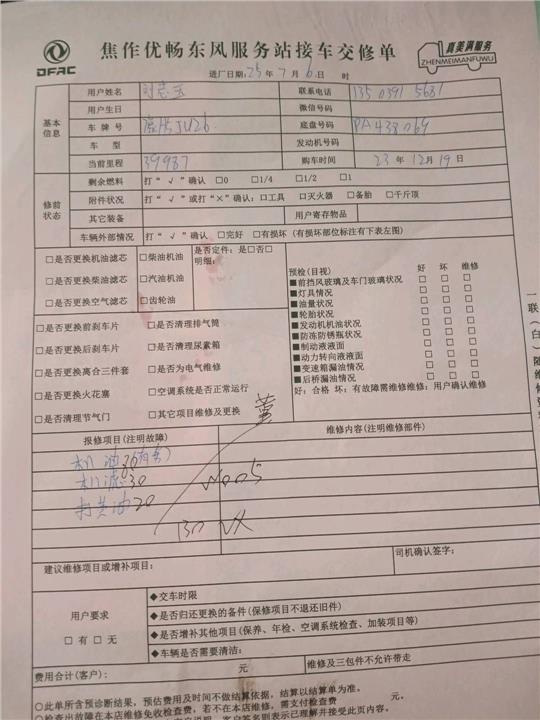 DFAC
焦作优畅东风服务站接车交修单
真美满服务
ZHENMEIMANFUWU
进厂日期: 25 年 7 月 6 日 时
基本信息
用户姓名 联系电话 135 0391 5681
用户生日 微信号码
车牌号 JU26 底盘号码 PA438069
车 型 发动机号码
当前里程 39987 购车时间 23 年 12 月 19 日
修前状态
剩余燃料 打“√”确认 □0 □1/4 □1/2 □1
附件状况 打“√”或打“×”确认: □工具 □灭火器 □备胎 □千斤顶
其它装备 用户寄存物品
车辆外部情况 打“√”确认 □完好 □有损坏 (有损坏部位标注有下表左图)
□是否更换机油滤芯 □柴油机油
□是否更换柴油滤芯 □汽油机油
□是否更换空气滤芯 □齿轮油
是否定件: 是□否□
明细:
□是否更换前刹车片 □是否清理排气筒
□是否更换后刹车片 □是否清理尿素箱
□是否更换离合三件套 □是否为电气维修
□是否更换火花塞 □空调系统是否正常运行
□是否清理节气门 □其它项目维修及更换
预检(目视) 好 坏 维修
■前挡风玻璃及车门玻璃状况 □ □ □
■灯具情况 □ □ □
■油量状况 □ □ □
■轮胎状况 □ □ □
■发动机机油状况 □ □ □
■防冻防锈瓶状况 □ □ □
■制动液液面 □ □ □
■动力转向液液面 □ □ □
■变速箱漏油情况 □ □ □
■后桥漏油情况 □ □ □
好: 合格 坏: 有故障需维修维修: 用户确认维修
报修项目(注明故障) 维修内容(注明维修部件)
机油30
机滤30
打黄油20
130
建议维修项目或增补项目:
司机确认签字:
用户要求
□有 □无
◆交车时限
◆是否归还更换的备件(保修项目不退还旧件)
◆是否增补其他项目(保养、年检、空调系统检查、加装项目等)
◆车辆是否需要清洁:
费用合计(客户): 元 维修及三包件不允许带走
○此单所含预诊断结果,预估费用及时间不做结算依据,结算以结算单为准。
○检查出故障在本店维修免收检查费,若不在本店维修,需支付检查费 元。